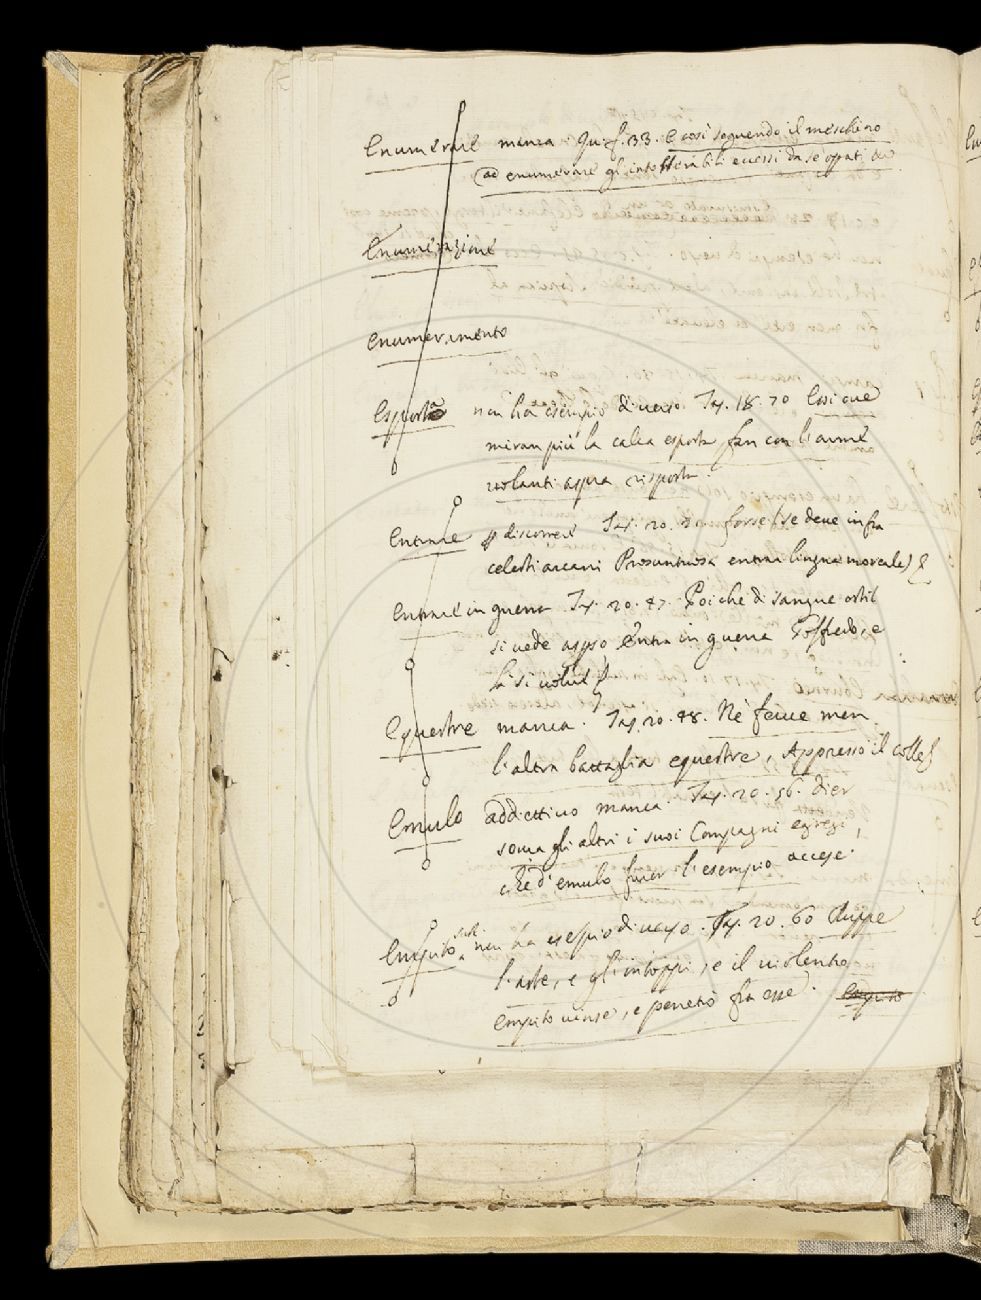 Enumerare manca. Qui. f. 33. E così seguendo il meschino
ad enumerare gl'intollerabili eccessi da se
Enumerazione
Enumeramento
Esporta non ha esempio di verso. Tas. 18. 70 Essi ove
miran più la calca esporta, fan con l'arme
volanti aspra risposta.
Entrare discorrere Tas. 20. forse (se deve infra
celesti arcani Prosuntuosa entrar lingua mortale) &
Entrare in guerra Tas. 20. 47. Poiche di sangue ostil
si vede Entra in guerra Goffredo, e
là si volve &
Equestre manca. Tas. 20. 48. Nè feeue men
l'altra battaglia equestre, Appresso il colle &
Emulo addiettivo manca. Tas. 20. 56. dier
soma gli altri i suoi Compagni egregi,
che d'emulo furor l'esempio accese.
Empito sust. non ha esempio di verso. Tas. 20. 60 Ruppe
l'aste, e gl'intoppi, e il violento
empito vinse, e penetrò fra esse. Empito